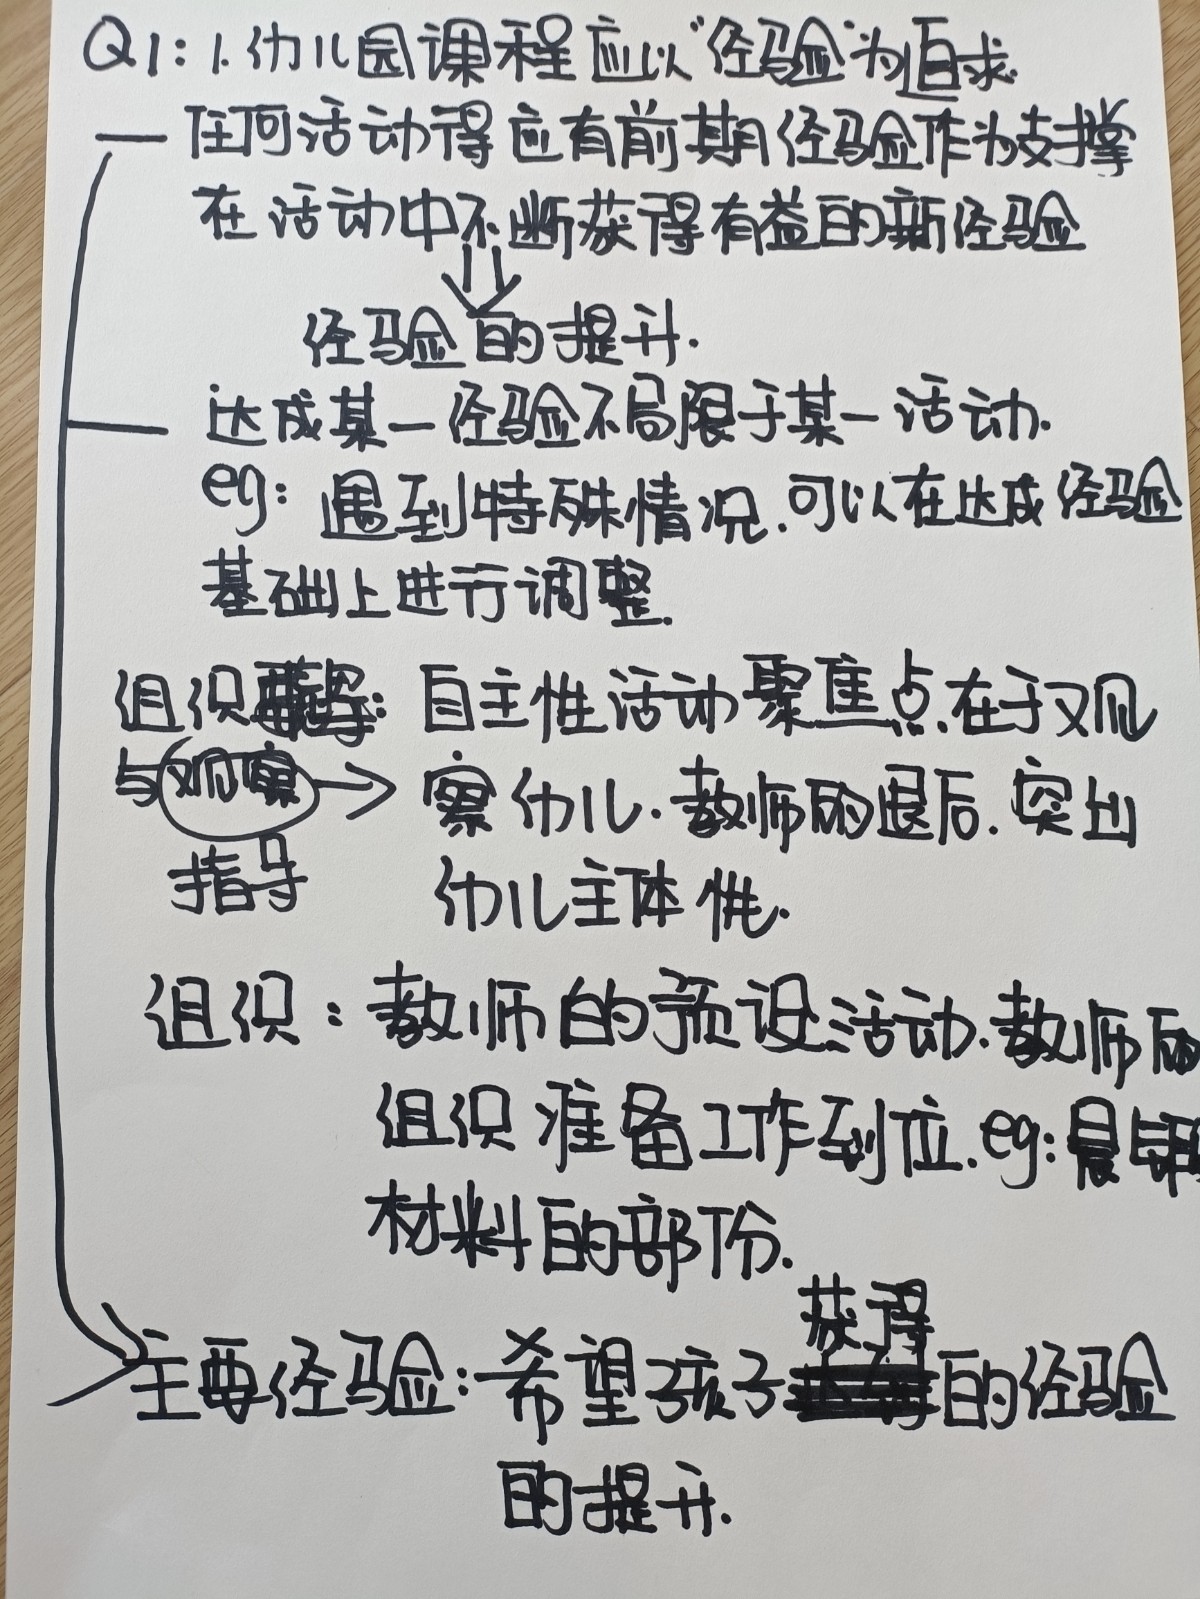 Q1: 1. 幼儿园课程应以“经验”为追求.
任何活动得应有前期经验作为支撑
在活动中不断获得有益的新经验
经验的提升.
达成某一经验不局限于某一活动.
eg: 遇到特殊情况.可以在达成经验
基础上进行调整.
组织: 自主性活动聚焦点.在于观
与观察 察幼儿.教师的退后.突出
指导 幼儿主体性.
组织: 教师的预设活动.教师的
组织准备工作到位.eg: 晨锻
材料的部份.
获得
主要经验:希望孩子的经验
的提升.